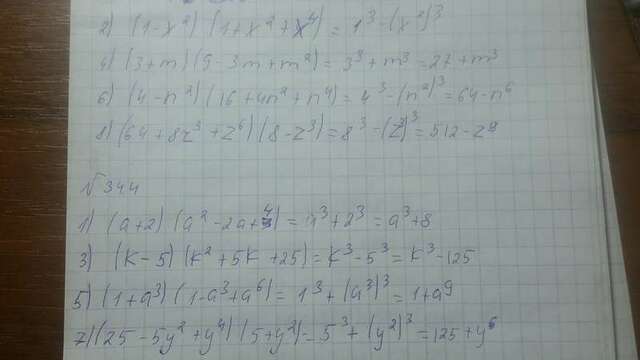 2) (1-x²) (1+x²+x⁴) = 1³-(x²)³
4) (3+m) (9-3m+m²) = 3³+m³=27+m³
6) (4-n²) (16+4n²+n⁴)=4³-(n²)³=64-n⁶
8) (64+8z³+z⁶) (8-z³)=8³-(z³)³=512-z⁹
√344
1) (a+2) (a²-2a+4) = a³+2³=a³+8
3) (k-5) (k²+5k+25)=k³-5³=k³-125
5) (1+a³) (1-a³+a⁶)=1³+(a³)³=1+a⁹
7) (25-5y²+y⁴) (5+y²)=5³+(y²)³=125+y⁶